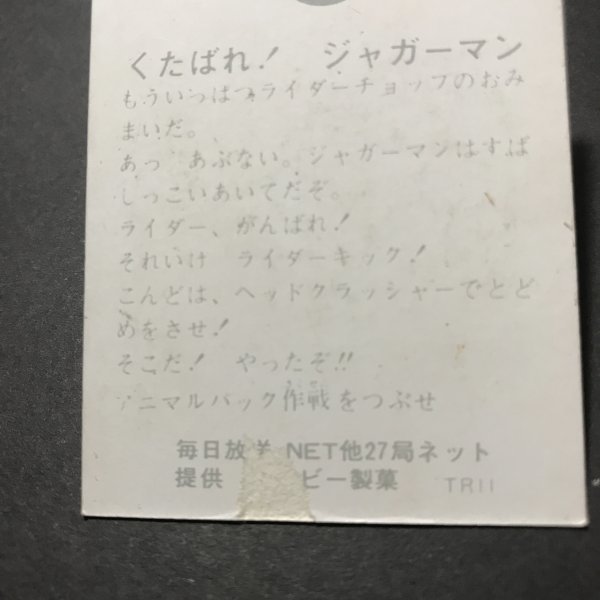 くたばれ! ジャガーマン
もういっぱつライダーチョップのおみ
まいだ。
あっ あぶない。ジャガーマンはすば
しっこいあいてだぞ。
ライダー、がんばれ!
それいけ ライダーキック!
こんどは、ヘッドクラッシャーでとど
めをさせ!
そこだ! やったぞ!!
アニマルパック作戦をつぶせ
毎日放送 NET他27局ネット
提供 ビー製菓 TR11